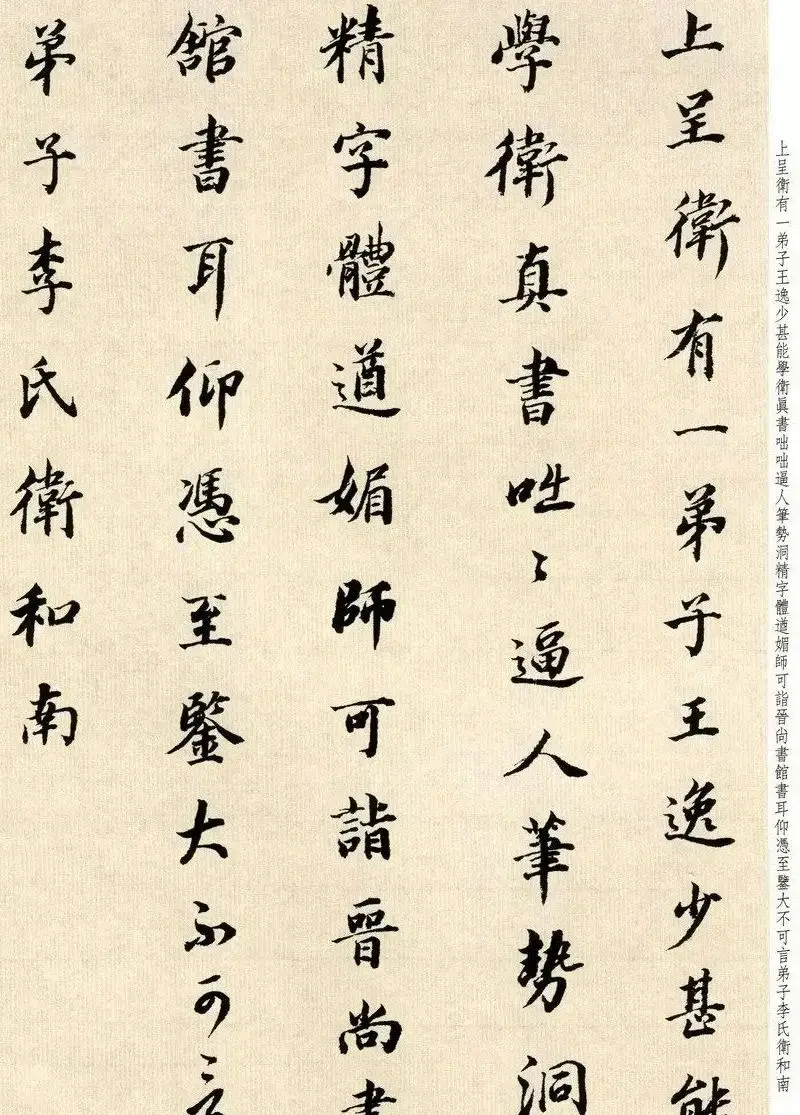 上呈衛有一弟子王逸少甚能
學衛真書咄〻逼人筆勢洞
精字體遒媚師可詣晉尚書
館書耳仰憑至鑒大不可言
弟子李氏衛和南
上呈衛有一弟子王逸少甚能學衛眞書咄咄逼人筆勢洞精字體遒媚師可詣晉尙書館書耳仰憑至鑒大不可言弟子李氏衛和南